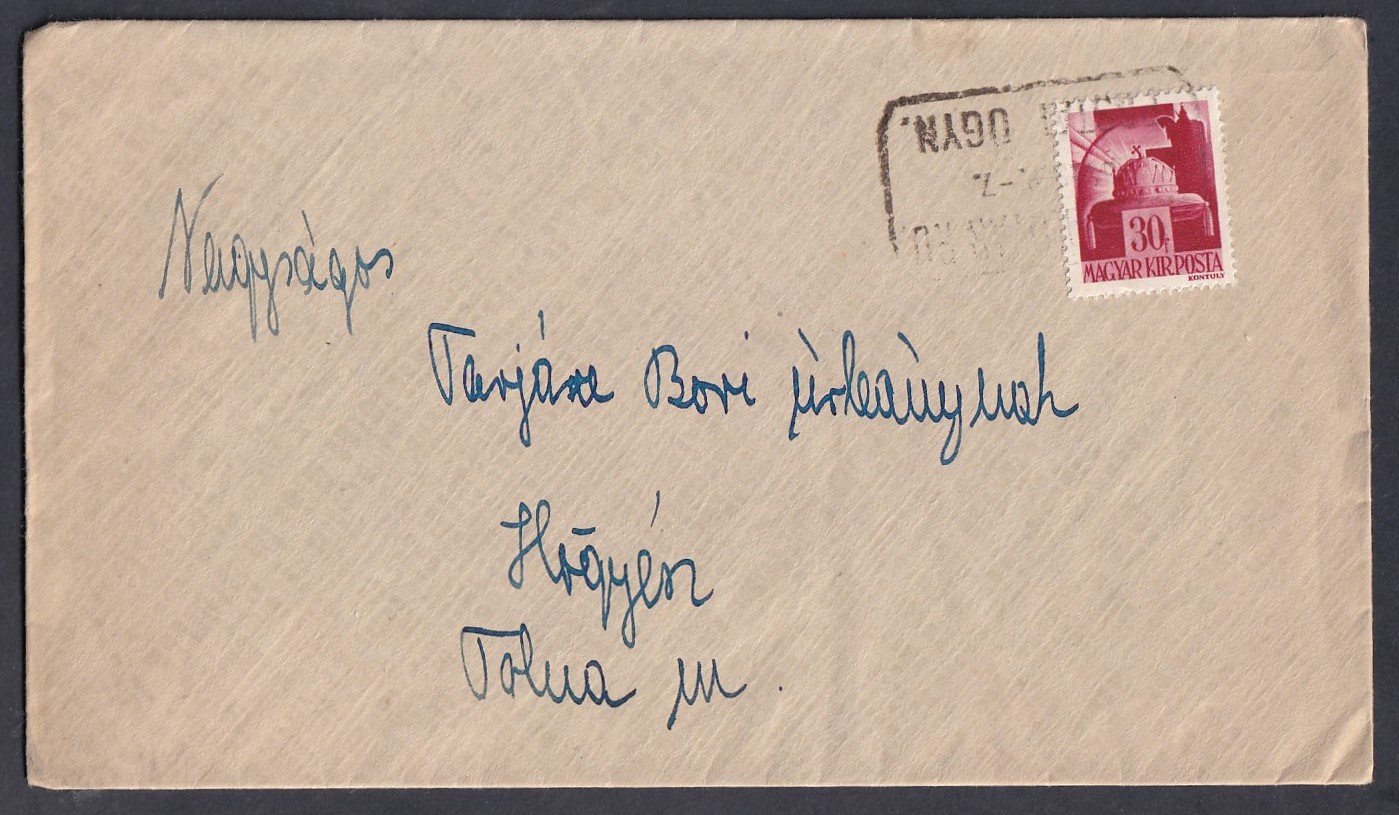 ÜGYN.
30f
MAGYAR KIR. POSTA
KONTULY
Nagyságos
Tarjász Bori úrleánynak
Hőgyész
Tolna m.